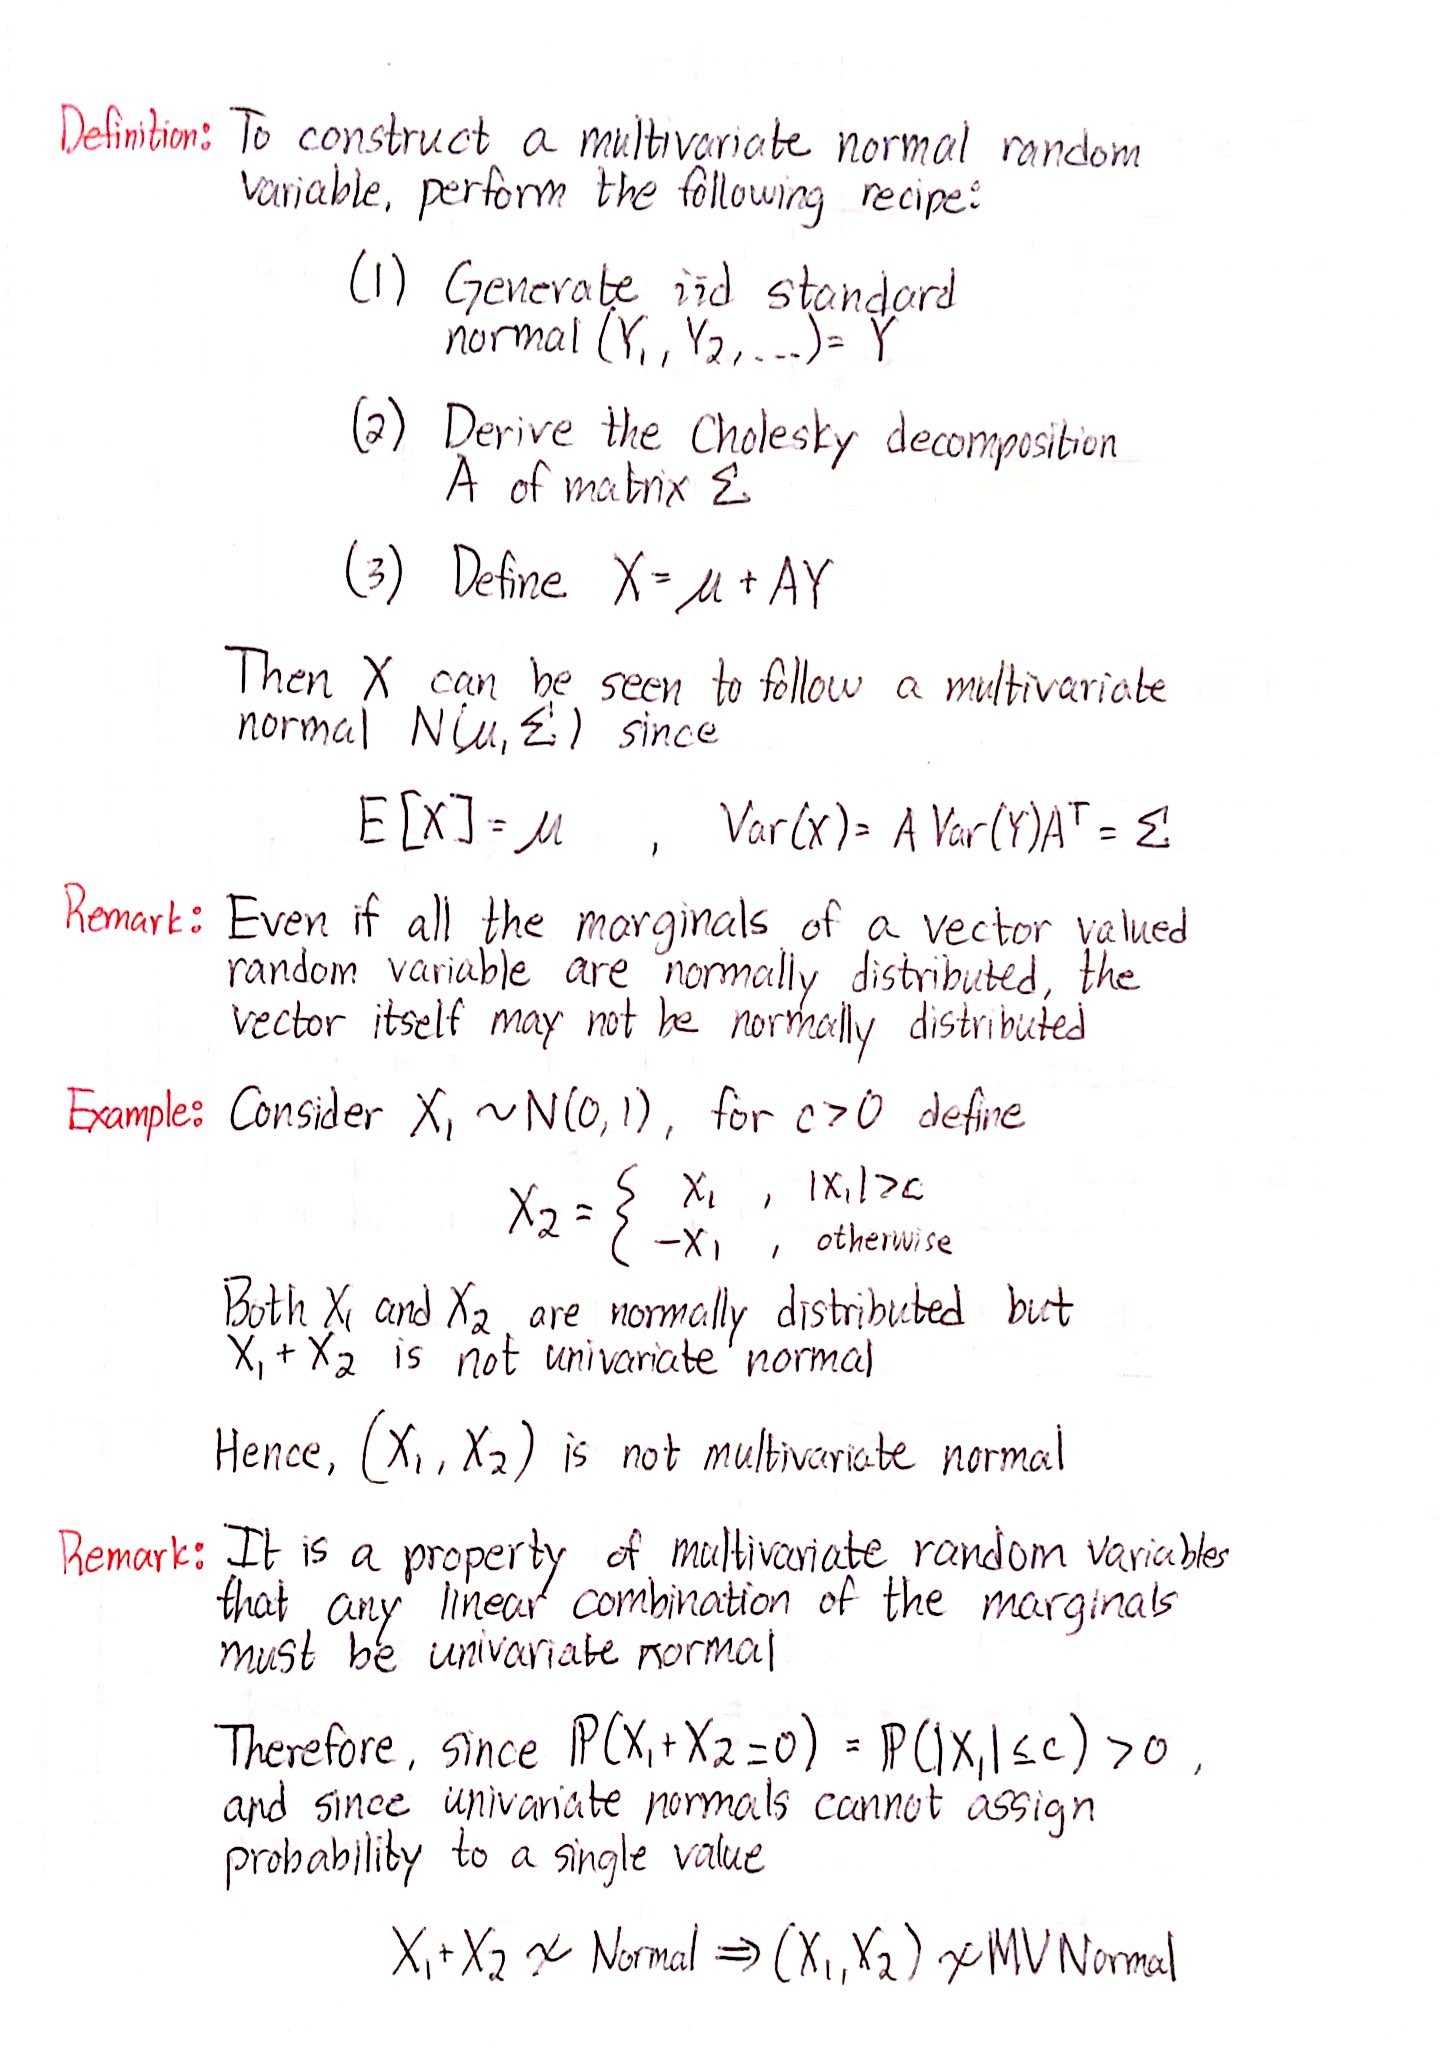 Definition: To construct a multivariate normal random
variable, perform the following recipe:
(1) Generate iid standard
normal (Y₁, Y₂, ....) = Y
(2) Derive the Cholesky decomposition
A of matrix Σ
(3) Define X = μ + AY
Then X can be seen to follow a multivariate
normal N(μ, Σ) since
E[X] = μ , Var(X) = A Var(Y)Aᵀ = Σ
Remark: Even if all the marginals of a vector valued
random variable are normally distributed, the
vector itself may not be normally distributed
Example: Consider X₁ ~ N(0,1), for c>0 define
X₂ = { X₁ , |X₁|>c
-X₁ , otherwise
Both X₁ and X₂ are normally distributed but
X₁ + X₂ is not univariate normal
Hence, (X₁, X₂) is not multivariate normal
Remark: It is a property of multivariate random variables
that any linear combination of the marginals
must be univariate normal
Therefore, since ℙ(X₁+X₂=0) = ℙ(|X₁|≤c) >0 ,
and since univariate normals cannot assign
probability to a single value
X₁+X₂ ≁ Normal ⇒ (X₁,X₂) ≁ MV Normal